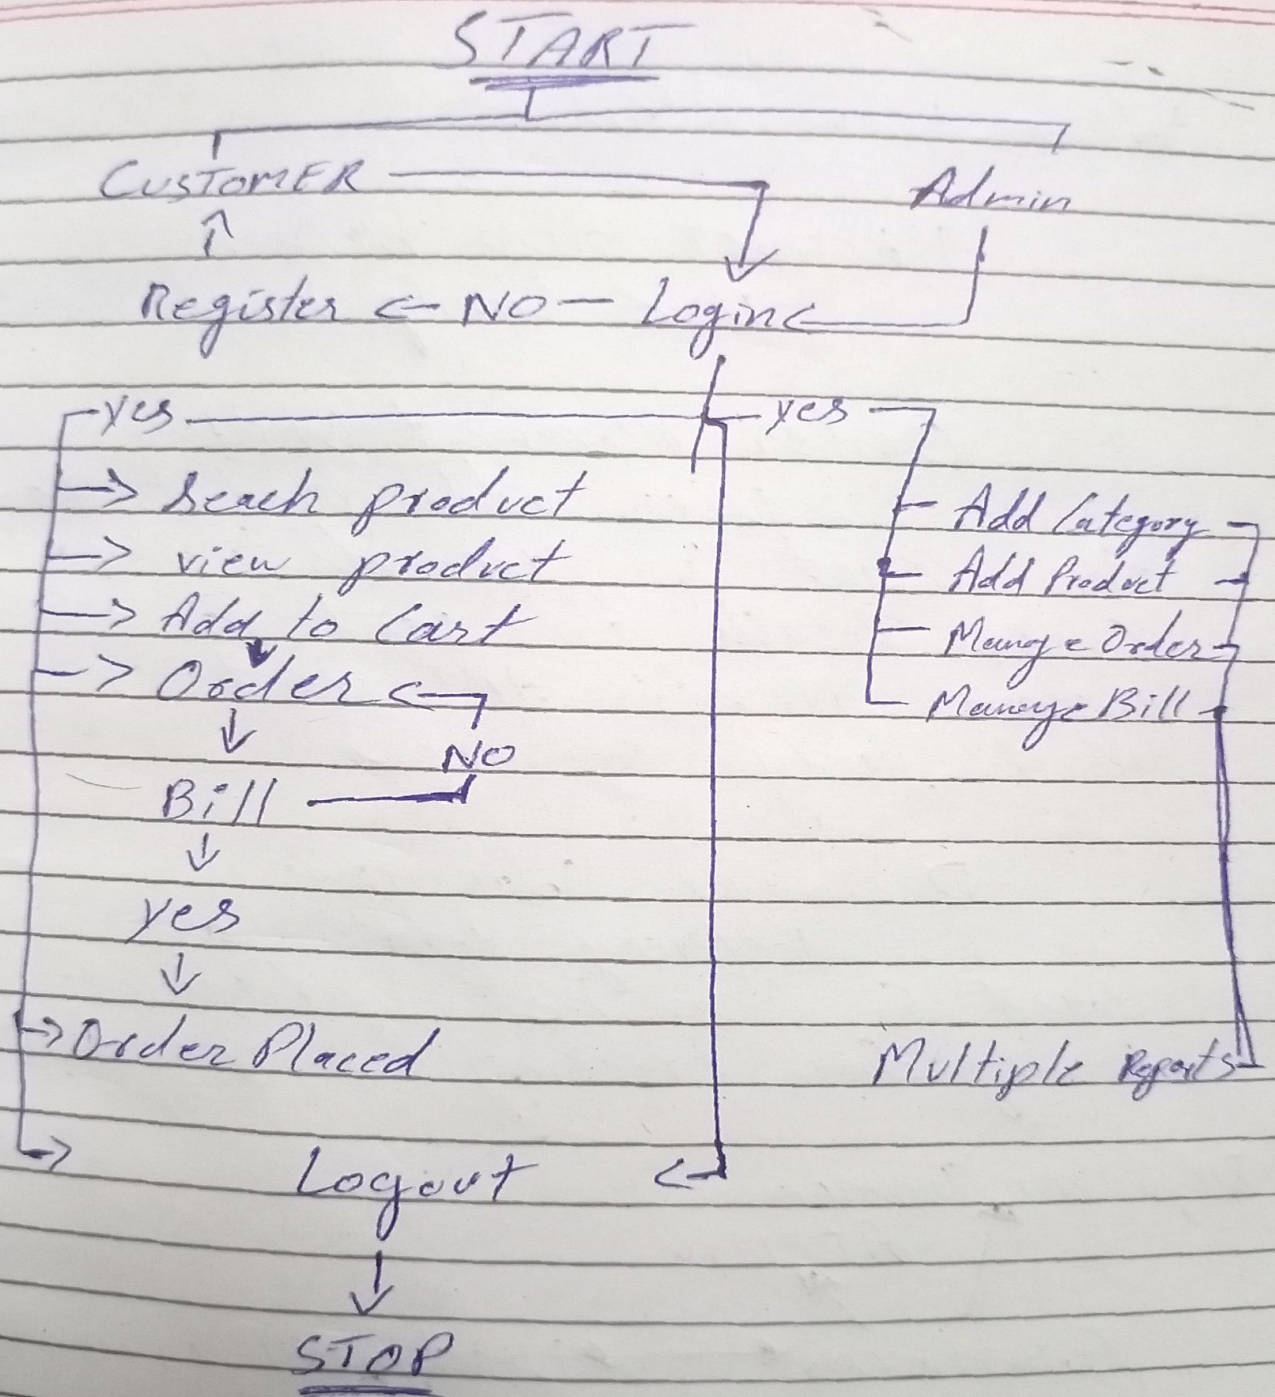 START
CUSTOMER Admin
Register NO Login
yes yes
Seach product
view product
Add to Cart
Order
NO
Bill
yes
Order Placed
Add Category
Add Product
Mange Order
Manage Bill
Multiple Reports
Logout
STOP